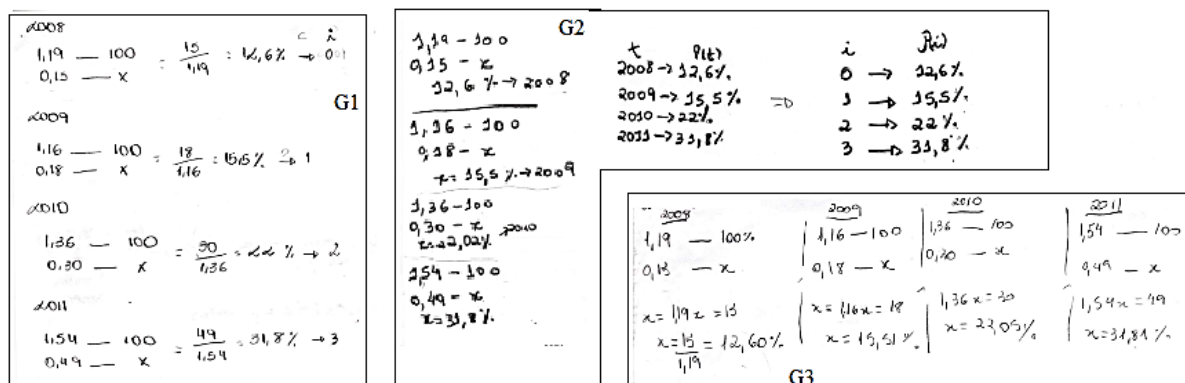 2008
1,19 — 100
0,15 — x
= 15/1,19 = 12,6% → 0
G1
2009
1,16 — 100
0,18 — x
= 18/1,16 = 15,5% → 1
2010
1,36 — 100
0,30 — x
= 30/1,36 = 22% → 2
2011
1,54 — 100
0,49 — x
= 49/1,54 = 31,8% → 3
G2
1,19 - 100
0,15 - x
12,6% → 2008
1,16 - 100
0,18 - x
x = 15,5% → 2009
1,36 - 100
0,30 - x
x = 22,02% → 2010
1,54 - 100
0,49 - x
x = 31,8%
t P(t)
2008 → 12,6%
2009 → 15,5% ⇒
2010 → 22%
2011 → 31,8%
i P(i)
0 → 12,6%
1 → 15,5%
2 → 22%
3 → 31,8%
2008
1,19 — 100%
0,15 — x
x = 1,19x = 15
x = 15/1,19 = 12,60%
2009
1,16 — 100
0,18 — x
x = 1,16x = 18
x = 15,51%
2010
1,36 — 100
0,30 — x
1,36x = 30
x = 22,05%
2011
1,54 — 100
0,49 — x
1,54x = 49
x = 31,81%
G3